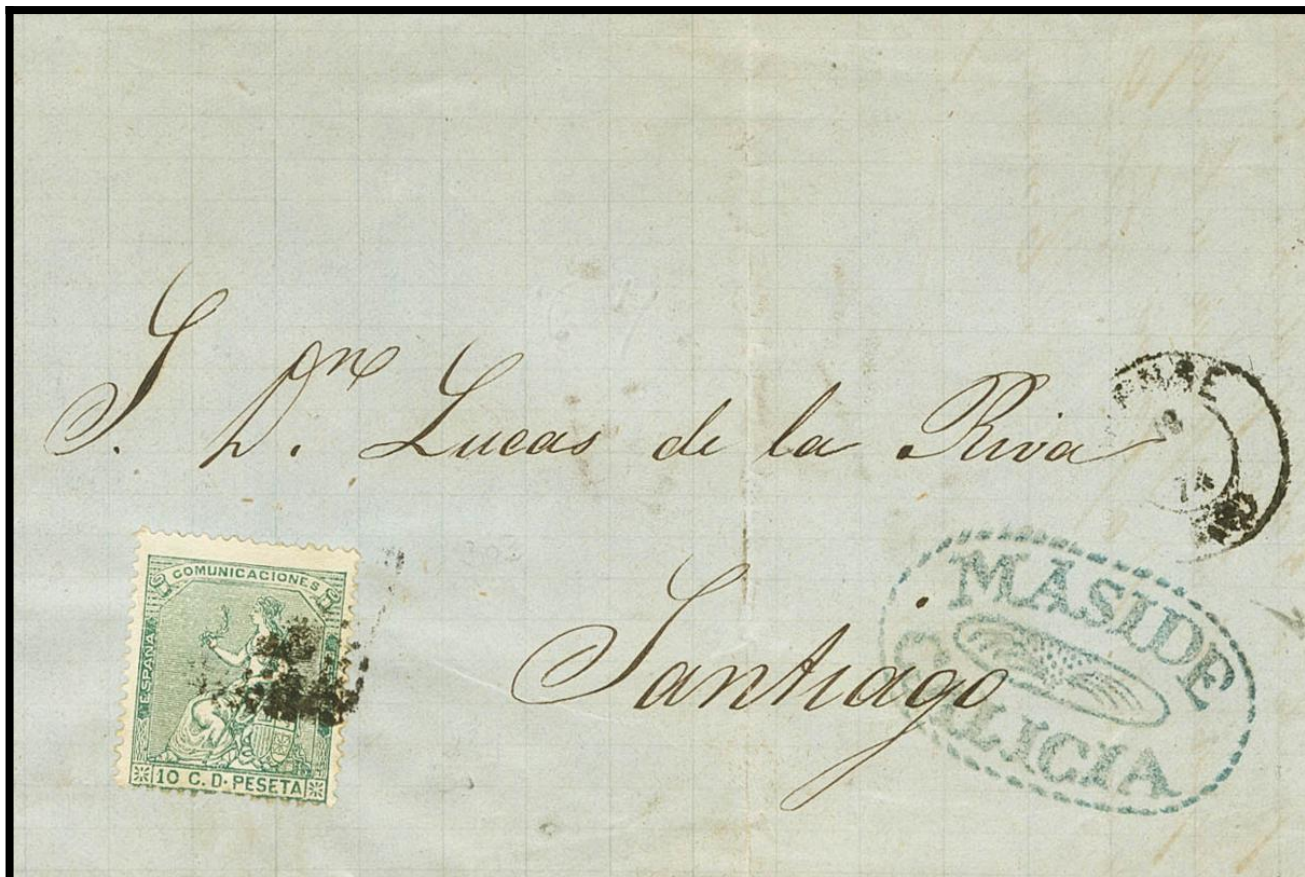 S. Dn. Lucas de la Riva
Santiago
COMUNICACIONES
ESPAÑA
10 C. D. PESETA
MASIDE
GALICIA